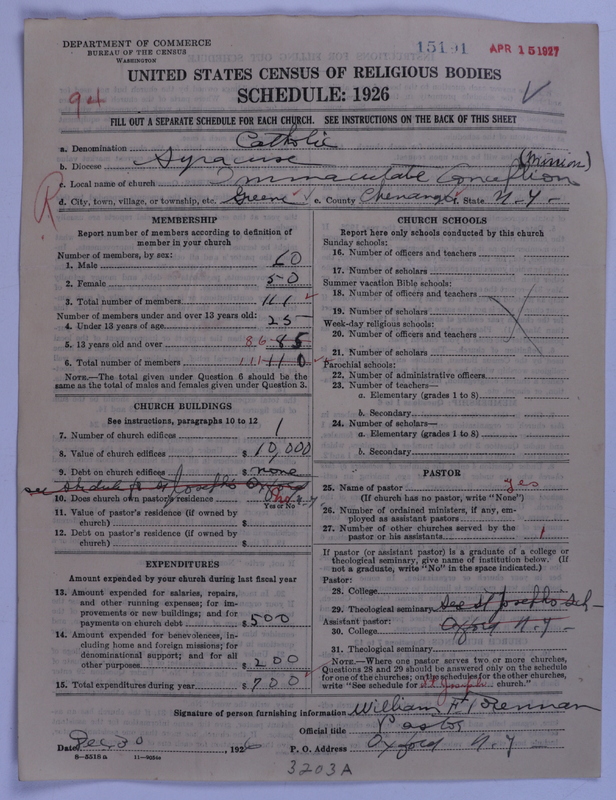 DEPARTMENT OF COMMERCE
BUREAU OF THE CENSUS
WASHINGTON
15191
APR 15 1927
94
UNITED STATES CENSUS OF RELIGIOUS BODIES
SCHEDULE: 1926
FILL OUT A SEPARATE SCHEDULE FOR EACH CHURCH. SEE INSTRUCTIONS ON THE BACK OF THIS SHEET
a. Denomination Catholic
b. Diocese Syracuse (Mission)
c. Local name of church Immaculate Conception
d. City, town, village, or township, etc. Greene e. County Chenango f. State N.Y.
R
MEMBERSHIP
Report number of members according to definition of member in your church
Number of members, by sex:
1. Male 60
2. Female 50
3. Total number of members 111
Number of members under and over 13 years old:
4. Under 13 years of age 25
5. 13 years old and over 86 85
6. Total number of members 111 110
NOTE.—The total given under Question 6 should be the same as the total of males and females given under Question 3.
CHURCH BUILDINGS
See instructions, paragraphs 10 to 12
7. Number of church edifices 1
8. Value of church edifices $ 10,000
9. Debt on church edifices $ none
see Schedule for St Joseph's Oxford N.Y.
10. Does church own pastor's residence no
Yes or No
11. Value of pastor's residence (if owned by church) $
12. Debt on pastor's residence (if owned by church) $
EXPENDITURES
Amount expended by your church during last fiscal year
13. Amount expended for salaries, repairs, and other running expenses; for improvements or new buildings; and for payments on church debt $ 500
14. Amount expended for benevolences, including home and foreign missions; for denominational support; and for all other purposes $ 200
15. Total expenditures during year $ 700
CHURCH SCHOOLS
Report here only schools conducted by this church
Sunday schools:
16. Number of officers and teachers
17. Number of scholars
Summer vacation Bible schools:
18. Number of officers and teachers
19. Number of scholars
Week-day religious schools:
20. Number of officers and teachers
21. Number of scholars
Parochial schools:
22. Number of administrative officers
23. Number of teachers—
a. Elementary (grades 1 to 8)
b. Secondary
24. Number of scholars—
a. Elementary (grades 1 to 8)
b. Secondary
PASTOR
25. Name of pastor yes
(If church has no pastor, write "None")
26. Number of ordained ministers, if any, employed as assistant pastors
27. Number of other churches served by the pastor or his assistants 1
If pastor (or assistant pastor) is a graduate of a college or theological seminary, give name of institution below. (If not a graduate, write "No" in the space indicated.)
Pastor:
28. College
29. Theological seminary See St Joseph's Sch-
Assistant pastor:
30. College Oxford N.Y.
31. Theological seminary
NOTE.—Where one pastor serves two or more churches, Questions 28 and 29 should be answered only on the schedule for one of the churches; on the schedules for the other churches, write "See schedule for St. Joseph church."
Signature of person furnishing information William F. Brennan
Official title Pastor
Date Dec 30, 1926 P. O. Address Oxford N.Y
8—5518 a 11—9056
3203A